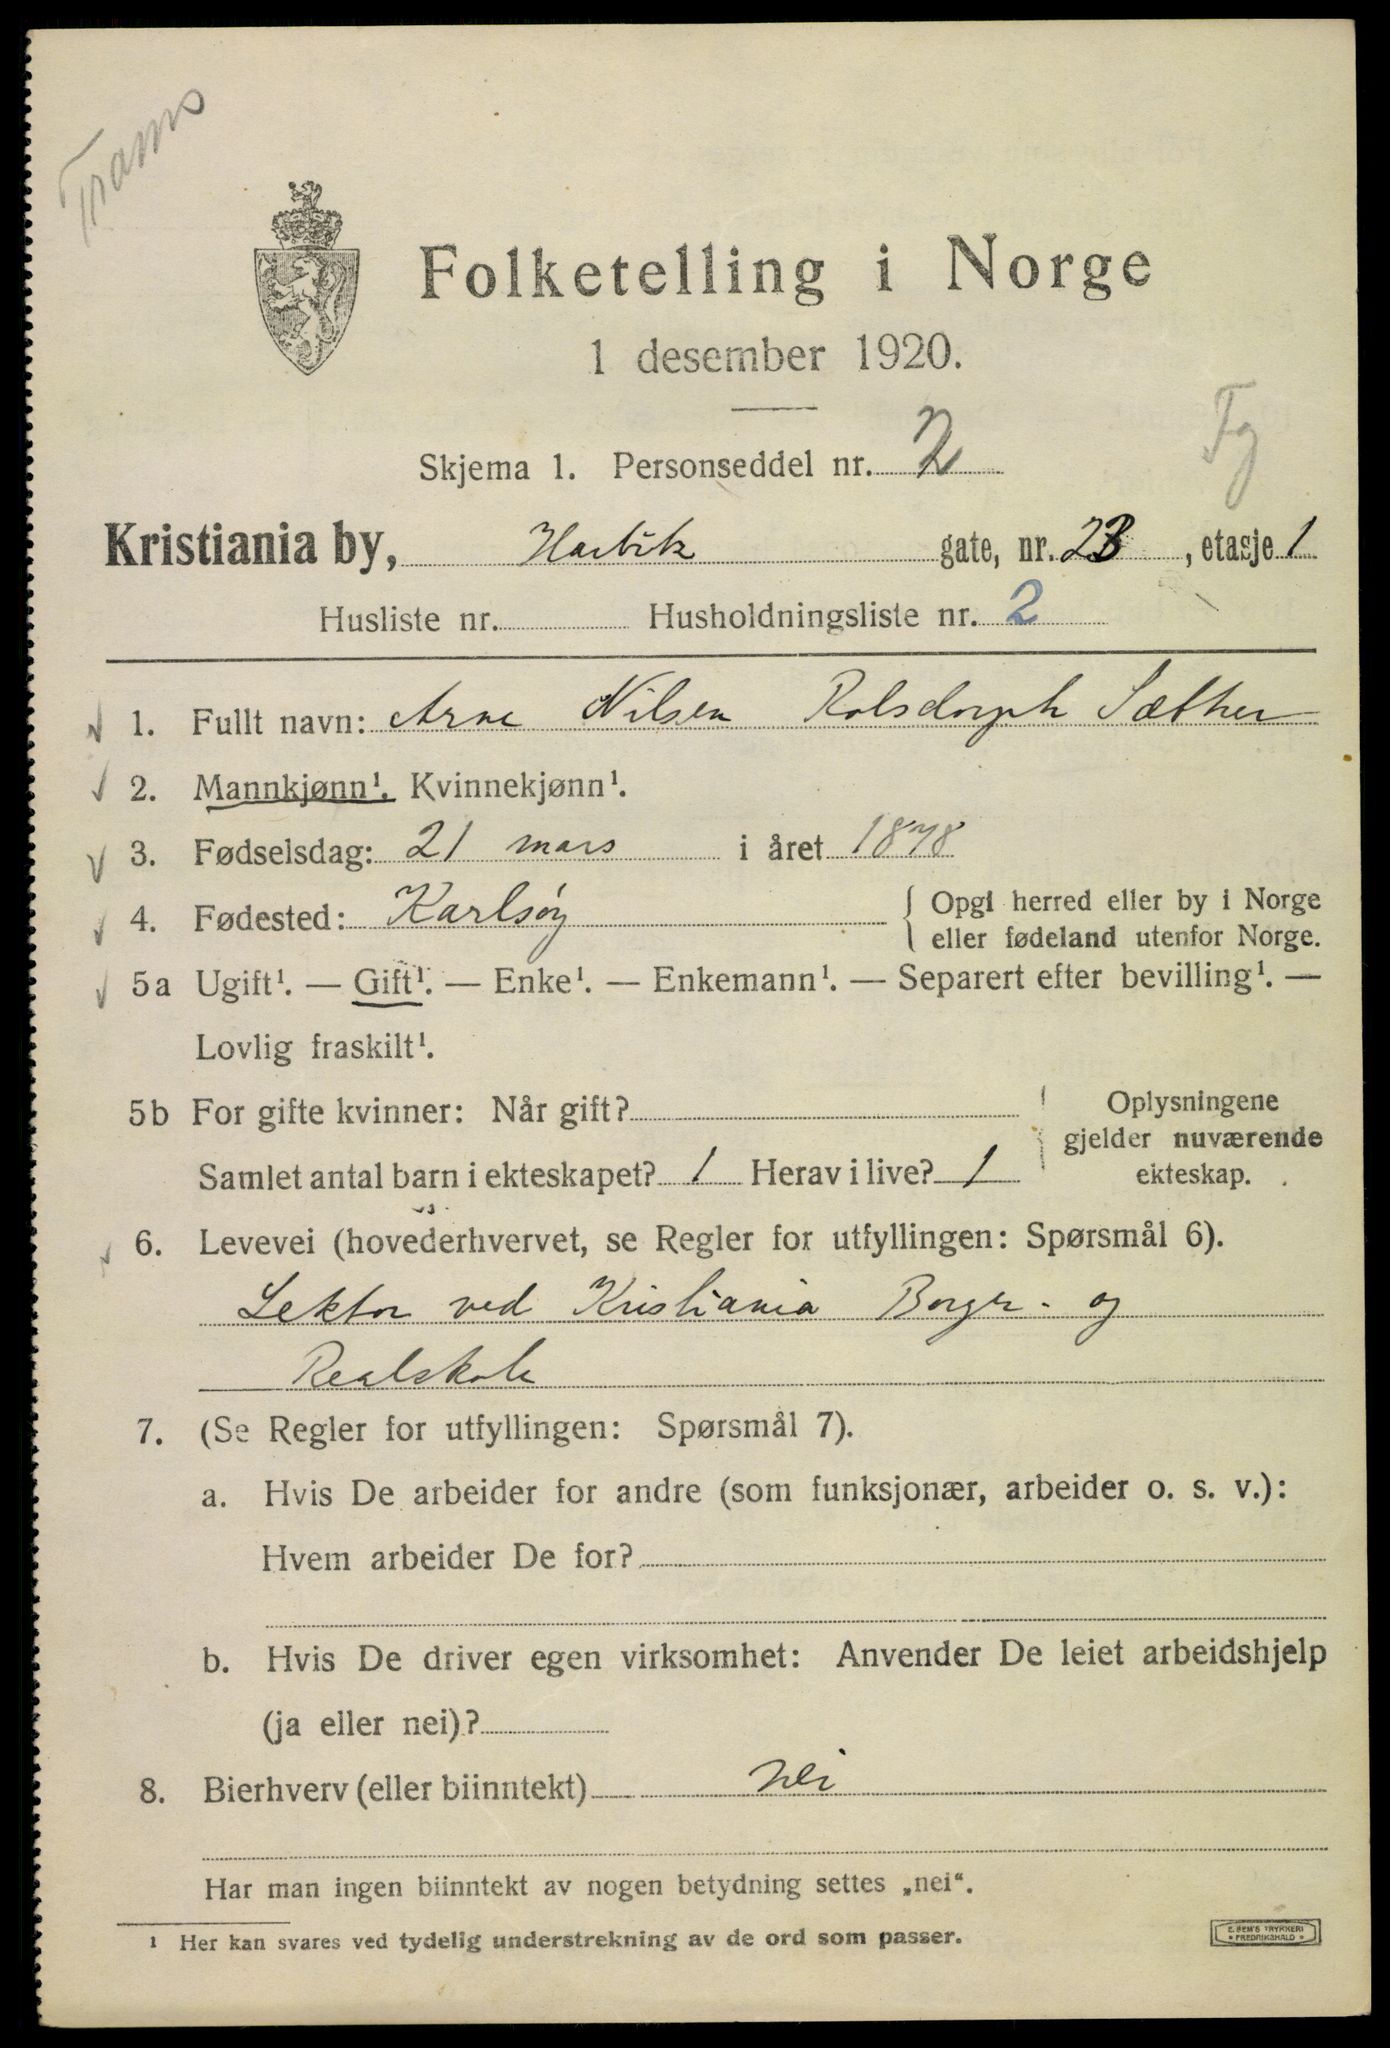 Troms
Folketelling i Norge
1 desember 1920.
Skjema 1. Personseddel nr. 2
Fg
Kristiania by, Harbitz gate, nr. 2B, etasje 1
Husliste nr. Husholdningsliste nr. 2
1. Fullt navn: Arne Nilsen Rolsdorph Sæther
2. Mannkjønn¹. Kvinnekjønn¹.
3. Fødselsdag: 21 mars i året 1878
4. Fødested: Karlsøy { Opgi herred eller by i Norge
eller fødeland utenfor Norge.
5a Ugift¹. — Gift¹. — Enke¹. — Enkemann¹. — Separert efter bevilling¹. —
Lovlig fraskilt¹.
5b For gifte kvinner: Når gift?
Samlet antal barn i ekteskapet? 1 Herav i live? 1
Oplysningene
gjelder nuværende
ekteskap.
6. Levevei (hovederhvervet, se Regler for utfyllingen: Spørsmål 6).
Lektor ved Kristiania Borger- og
Realskole
7. (Se Regler for utfyllingen: Spørsmål 7).
a. Hvis De arbeider for andre (som funksjonær, arbeider o. s. v.):
Hvem arbeider De for?
b. Hvis De driver egen virksomhet: Anvender De leiet arbeidshjelp
(ja eller nei)?
8. Bierhverv (eller biinntekt) nei
Har man ingen biinntekt av nogen betydning settes „nei“.
¹ Her kan svares ved tydelig understrekning av de ord som passer.
E. SEM'S TRYKKERI
* FREDRIKSHALD *